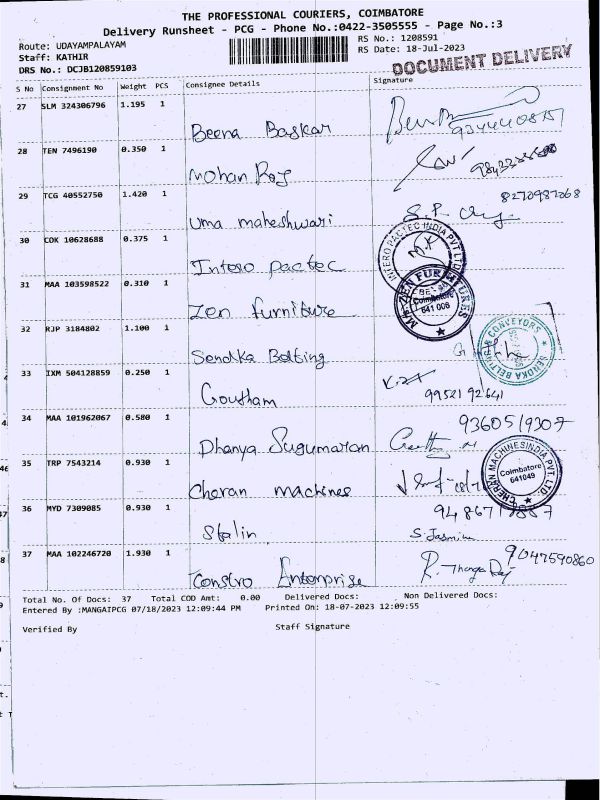 THE PROFESSIONAL COURIERS, COIMBATORE
Delivery Runsheet - PCG - Phone No.:0422-3505555 - Page No.:3
Route: UDAYAMPALAYAM
RS No.: 1208591
Staff: KATHIR
RS Date: 18-Jul-2023
DRS No.: DCJB120859103
DOCUMENT DELIVERY
S No Consignment No Weight PCS Consignee Details Signature
27 SLM 324306796 1.195 1
Beena Baskar
28 TEN 7496190 0.350 1
Mohan Raj
29 TCG 40552750 1.420 1
8270987068
Uma maheshwari
30 COK 10628688 0.375 1
Intero pactec
INTERO PACTEC INDIA PVT LTD
31 MAA 103598522 0.310 1
Zen furniture
ZEN FURNITURES
Coimbatore
641 006
32 RJP 3184802 1.100 1
Sendka Belting
CONVEYORS
33 IXM 504128859 0.250 1
Goutham
99521 92641
34 MAA 101962067 0.580 1
9360519307
Dhanya Sugumaran
35 TRP 7543214 0.930 1
Cheran machines
CHERAN MACHINES INDIA PVT. LTD.
Coimbatore
641049
36 MYD 7309085 0.930 1
Stalin
S. Jasmin
37 MAA 102246720 1.930 1
9047590860
Constro Enterprise
R. Thanga Raj
Total No. Of Docs: 37 Total COD Amt: 0.00 Delivered Docs: Non Delivered Docs:
Entered By :MANGAIPCG 07/18/2023 12:09:44 PM Printed On: 18-07-2023 12:09:55
Verified By Staff Signature